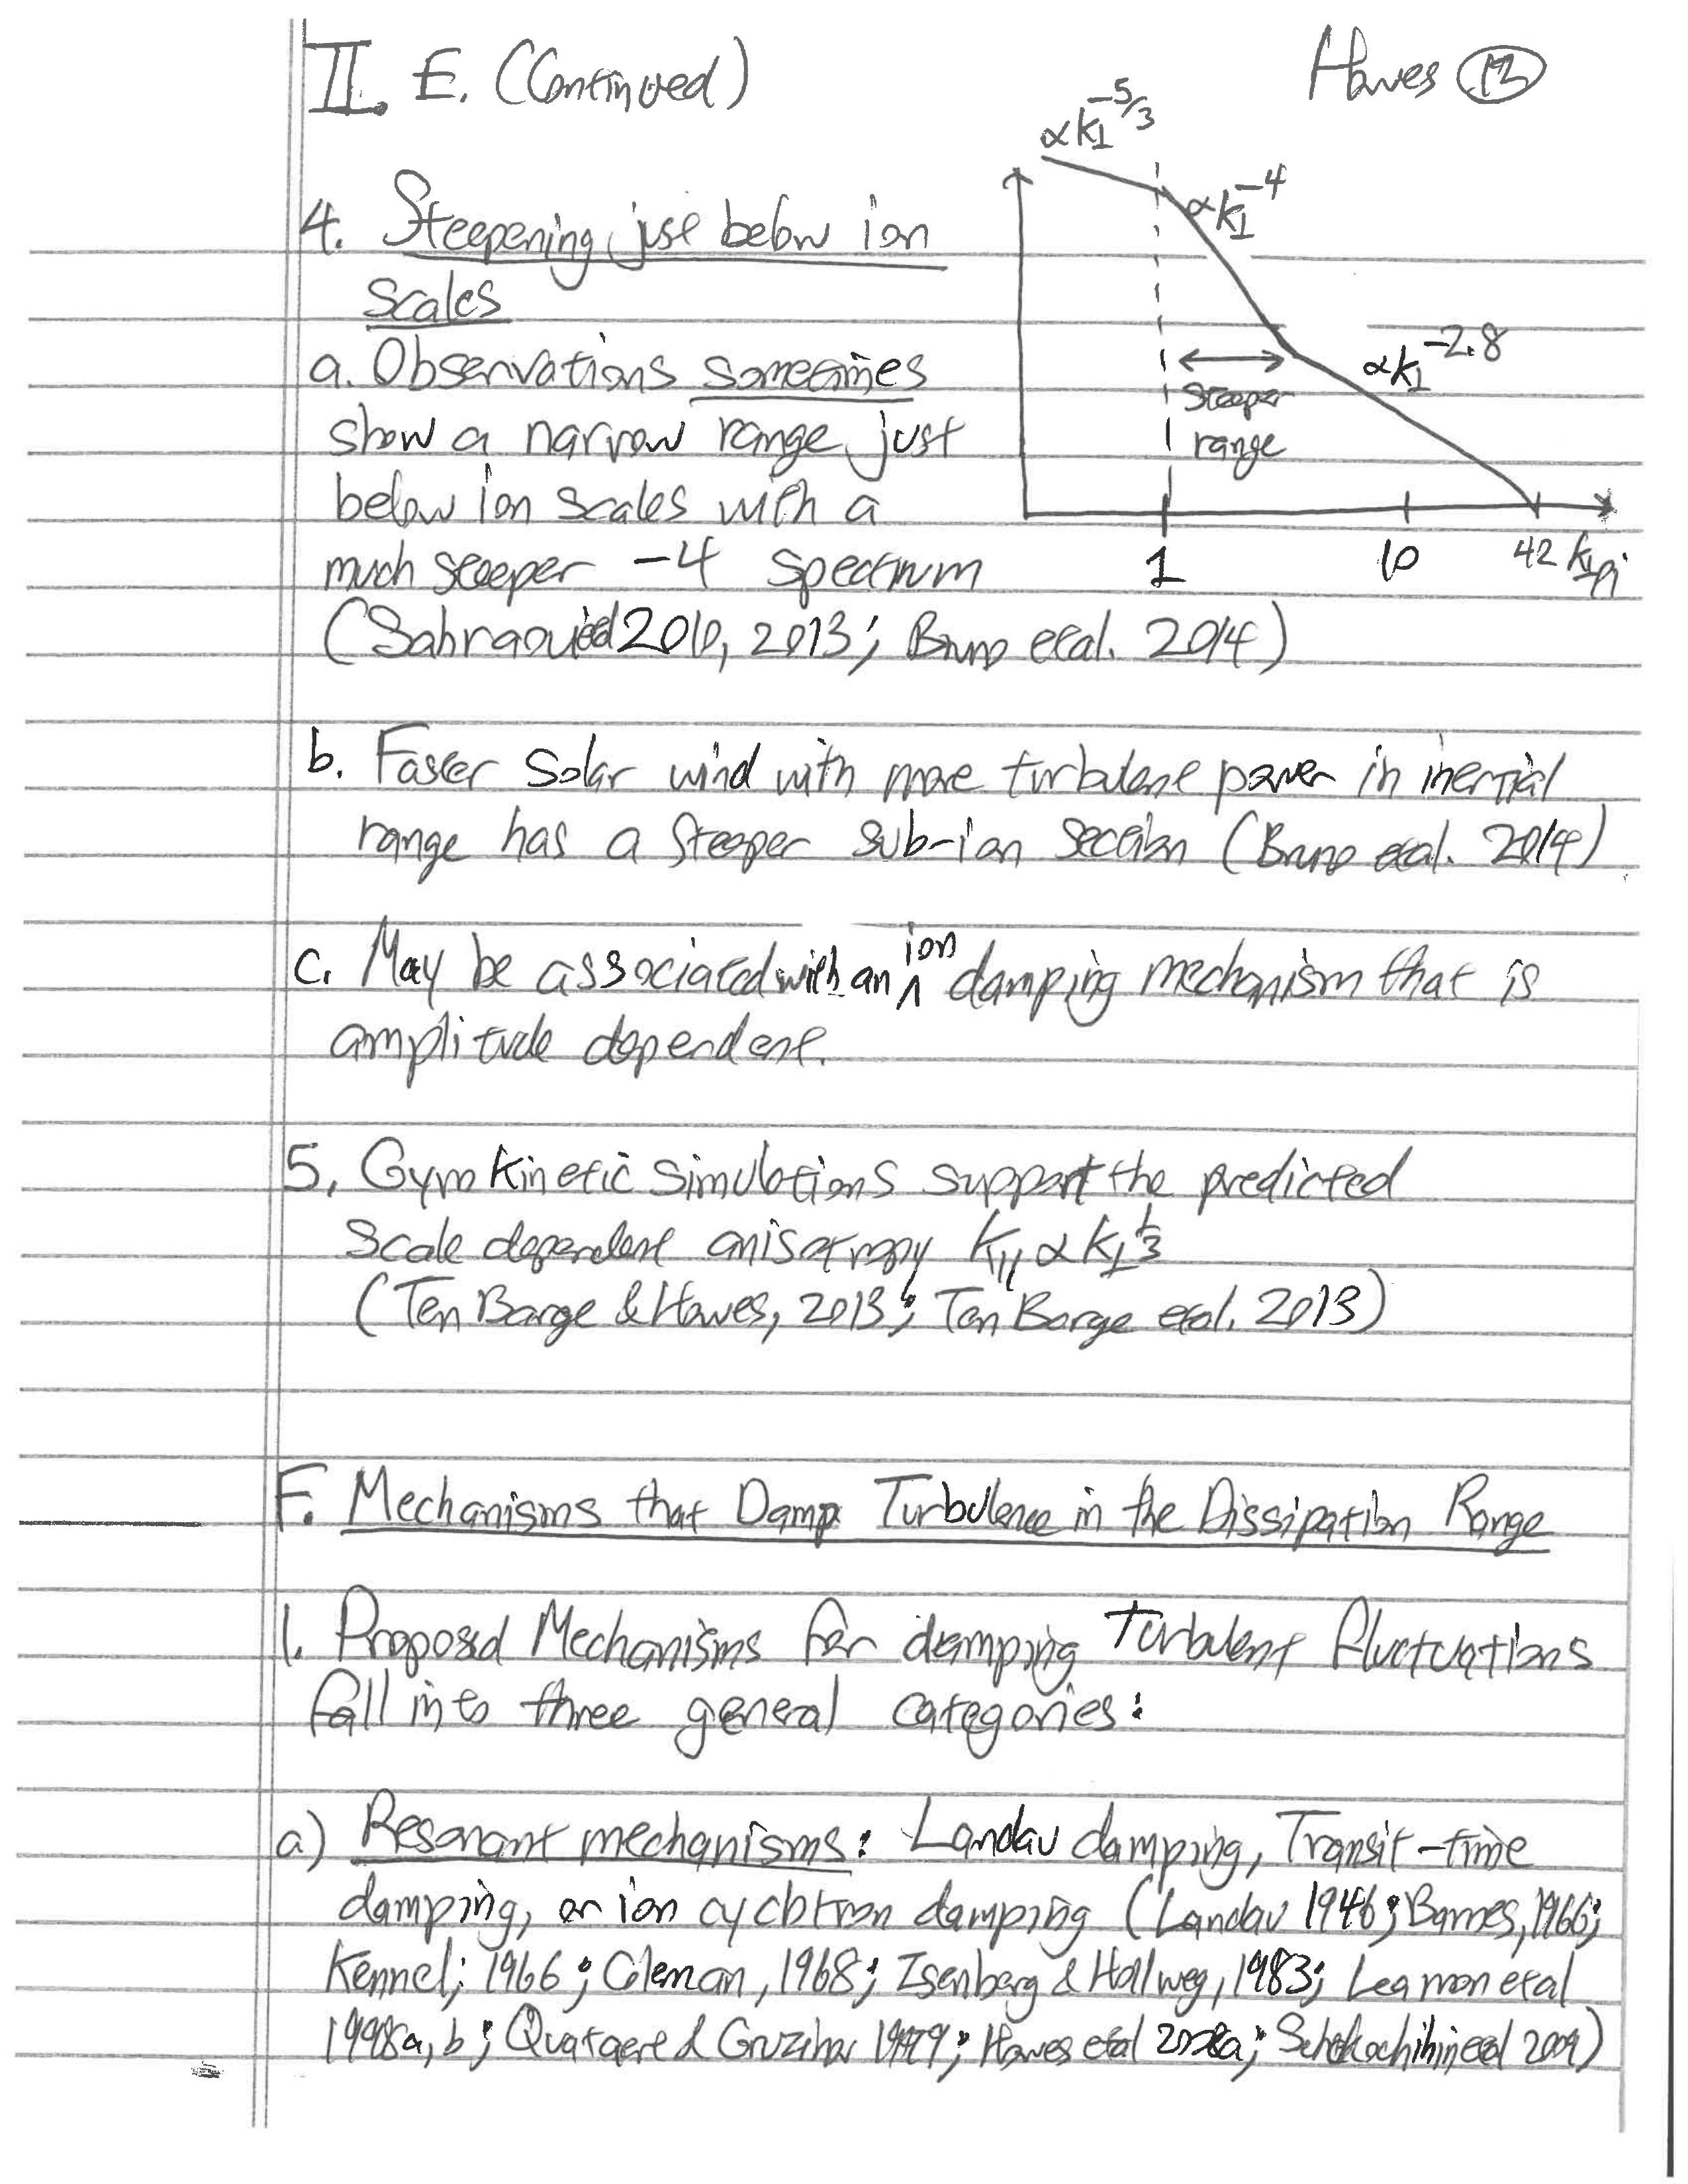 II. E. (Continued)
Howes 13
4. Steepening just below ion
scales
a. Observations sometimes
show a narrow range just
below ion scales with a
much steeper -4 spectrum
(Sahraoui et al 2010, 2013; Bruno et al. 2014)
∝k⊥^-5/3
∝k⊥^-4
∝k⊥^-2.8
steeper
range
1 10 42 k⊥ρi
b. Faster solar wind with more turbulent power in inertial
range has a steeper sub-ion section (Bruno et al. 2014)
c. May be associated with an ion damping mechanism that is
amplitude dependent.
5. Gyrokinetic simulations support the predicted
scale dependent anisotropy k∥ ∝ k⊥^1/3
(TenBarge & Howes, 2013; TenBarge et al. 2013)
F. Mechanisms that Damp Turbulence in the Dissipation Range
1. Proposed Mechanisms for damping Turbulent fluctuations
fall into three general categories:
a) Resonant mechanisms: Landau damping, Transit-time
damping, or ion cyclotron damping (Landau 1946; Barnes, 1966;
Kennel; 1966; Coleman, 1968; Isenberg & Hollweg, 1983; Leamon et al
1998a, b; Quataert & Gruzinov 1999; Howes et al 2008a; Schekochihin et al 2009)